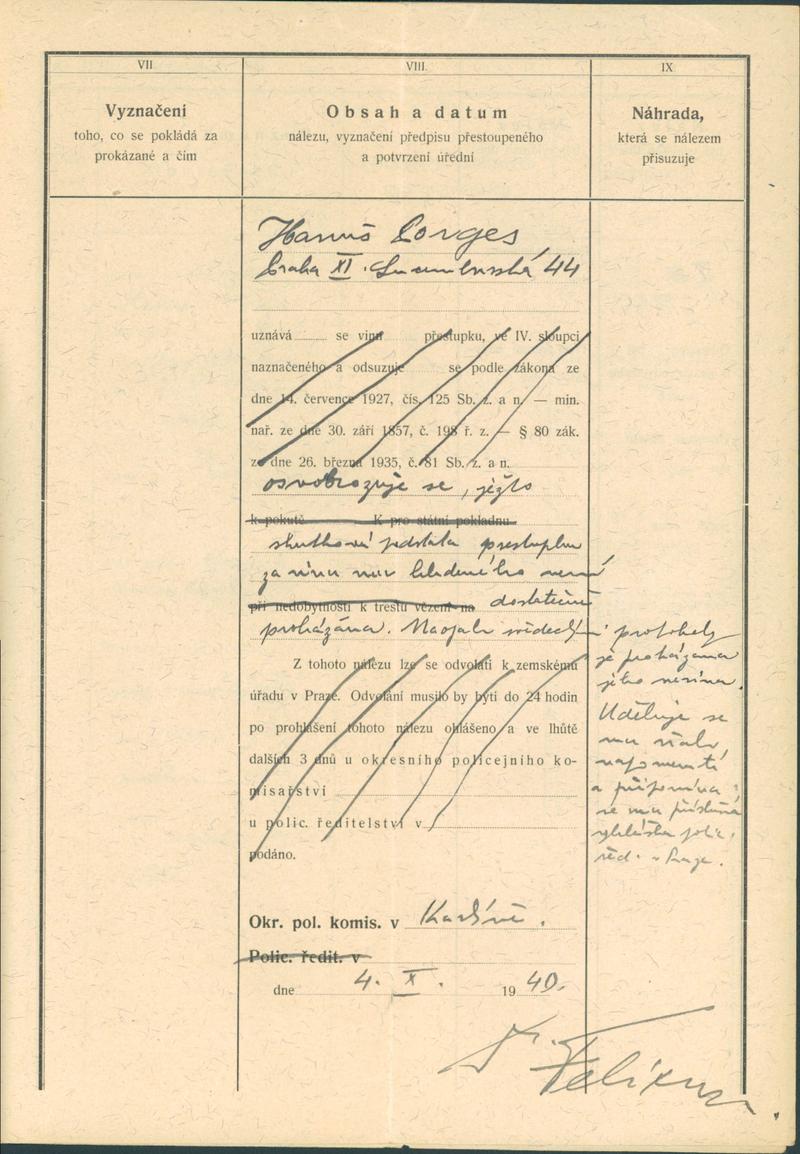 VII
Vyznačení
toho, co se pokládá za
prokázané a čím
VIII.
Obsah a datum
nálezu, vyznačení předpisu přestoupeného
a potvrzení úřední
IX
Náhrada,
která se nálezem
přisuzuje
Hanuš Lorges
Praha XI. 44
uznává se vinn přestupku, ve IV. sloupci
naznačeného a odsuzuje se podle zákona ze
dne 14. července 1927, čís. 125 Sb. z. a n. — min.
nař. ze dne 30. září 1857, č. 198 ř. z. — § 80 zák.
ze dne 26. března 1935, č. 81 Sb. z. a n.
osvobozuje se, ježto
k pokutě K pro státní pokladnu
skutková podstata přestupku
za vinu mu kladeného není
při nedobytnosti k trestu vězení na dostatečně
prokázána. Naopak svědeckými protokoly
je prokázana
jeho nevina.
Uděluje se
mu však
napomenutí
a připomíná
se mu příslušná
vyhláška polic.
řed. v Praze.
Z tohoto nálezu lze se odvolati k zemskému
úřadu v Praze. Odvolání musilo by býti do 24 hodin
po prohlášení tohoto nálezu ohlášeno a ve lhůtě
dalších 3 dnů u okresního policejního ko-
misařství
u polic. ředitelství v
podáno.
Okr. pol. komis. v Karlíně.
Polic. ředit. v
dne 4. X. 1940.